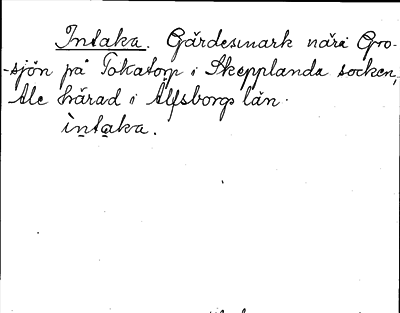 Intaka. Gärdesmark nära Gro-
-sjön på Tokatorp i Skepplanda socken,
Ale härad i Älfsborgs län.
ìntaka.